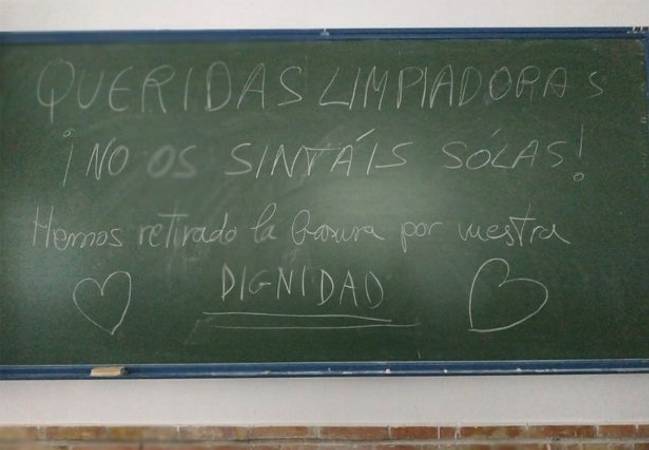 QUERIDAS LIMPIADORAS
¡NO OS SINTÁIS SÓLAS!
Hemos retirado la basura por vuestra
DIGNIDAD